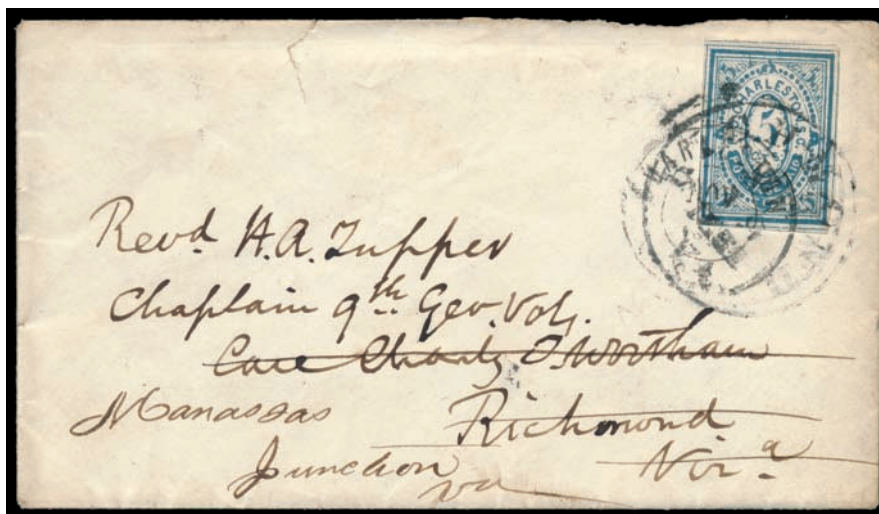 CHARLESTON, S.C.
5
PAID
Revd. H. A. Tupper
Chaplain 9th Geo. Vols.
Care Charles Wortham
Manassas Richmond
Junction Vira
va